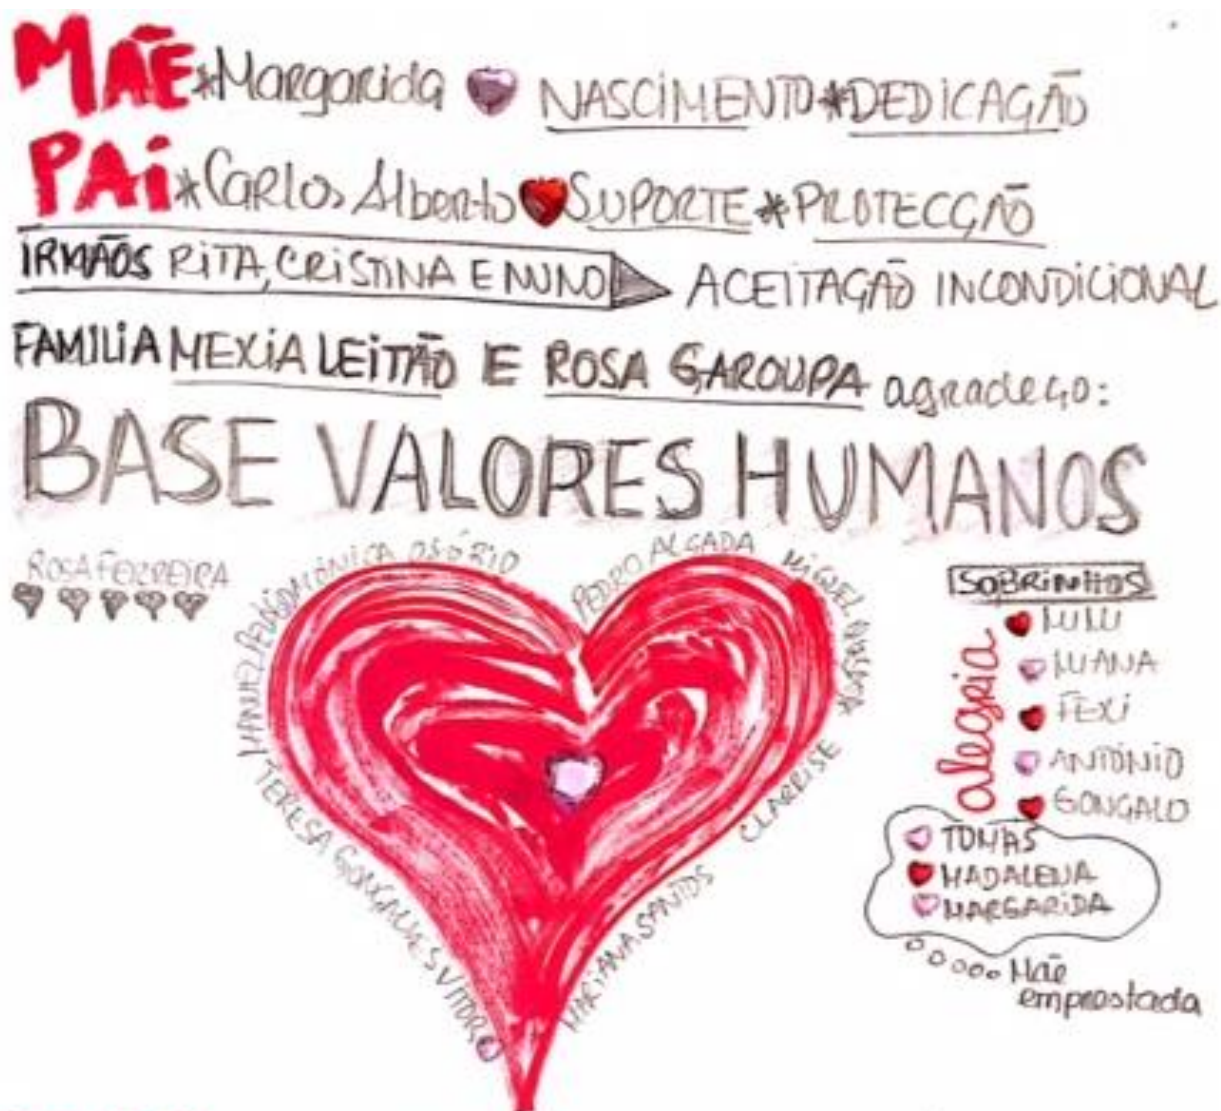 MÃE*Margarida NASCIMENTO*DEDICAÇÃO
PAi*CARlos Alberto SUPORTE*PROTECÇÃO
iRMÃOS RiTA, CRiSTiNA E NUNO ACEITAÇÃO INCONDICIONAL
FAMILIA MEXiA LEiTÃO E ROSA GAROUPA agradeço:
BASE VALORES HUMANOS
ROSA FERREIRA
MANUEL PELÁGIO MÓNICA OSÓRIO
PEDRO ALGADA
MIGUEL
CLARRISE
MARIANA SANTOS
TERESA GONÇALVES VITOR
SOBRINHOS
alegria
LUANA
FEXi
ANTÓNIO
GONÇALO
TOMAS
MADALENA
MARGARiDA
Mãe
emprestada